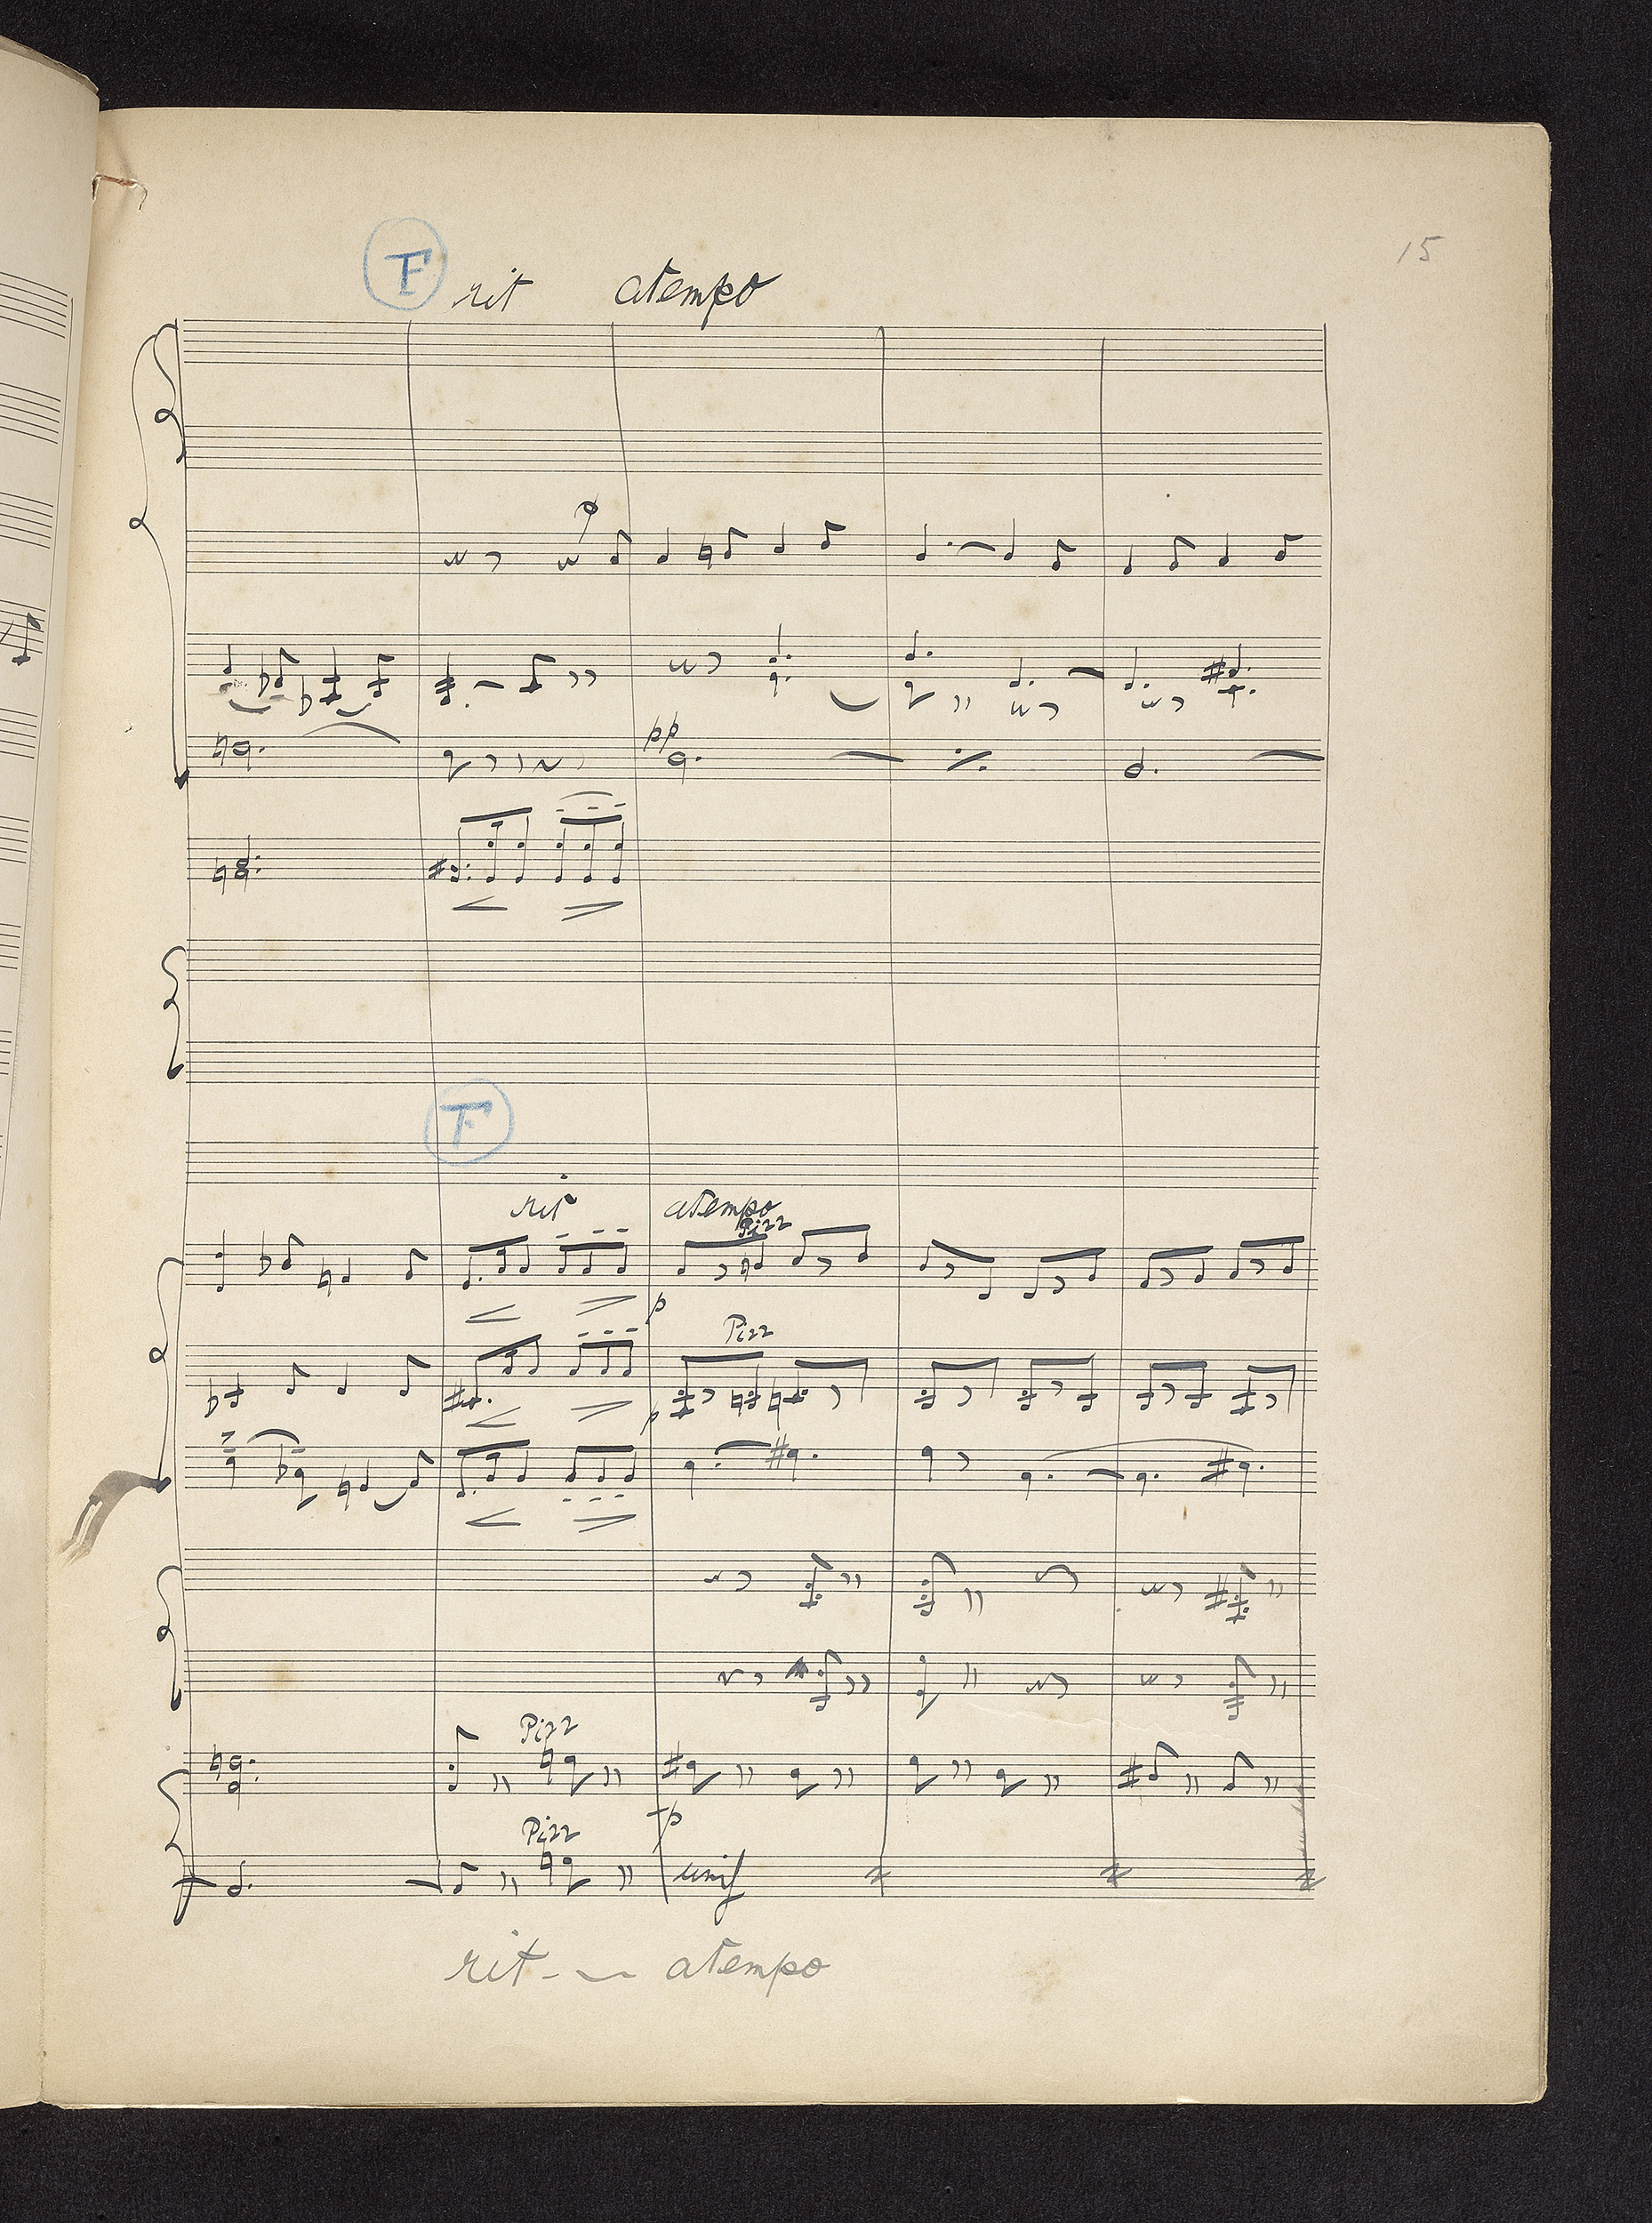 15
F rit atempo
p
pp
F
rit atempo
Pizz
p
Pizz
p
Pizz
p
Pizz
unis
rit - - atempo